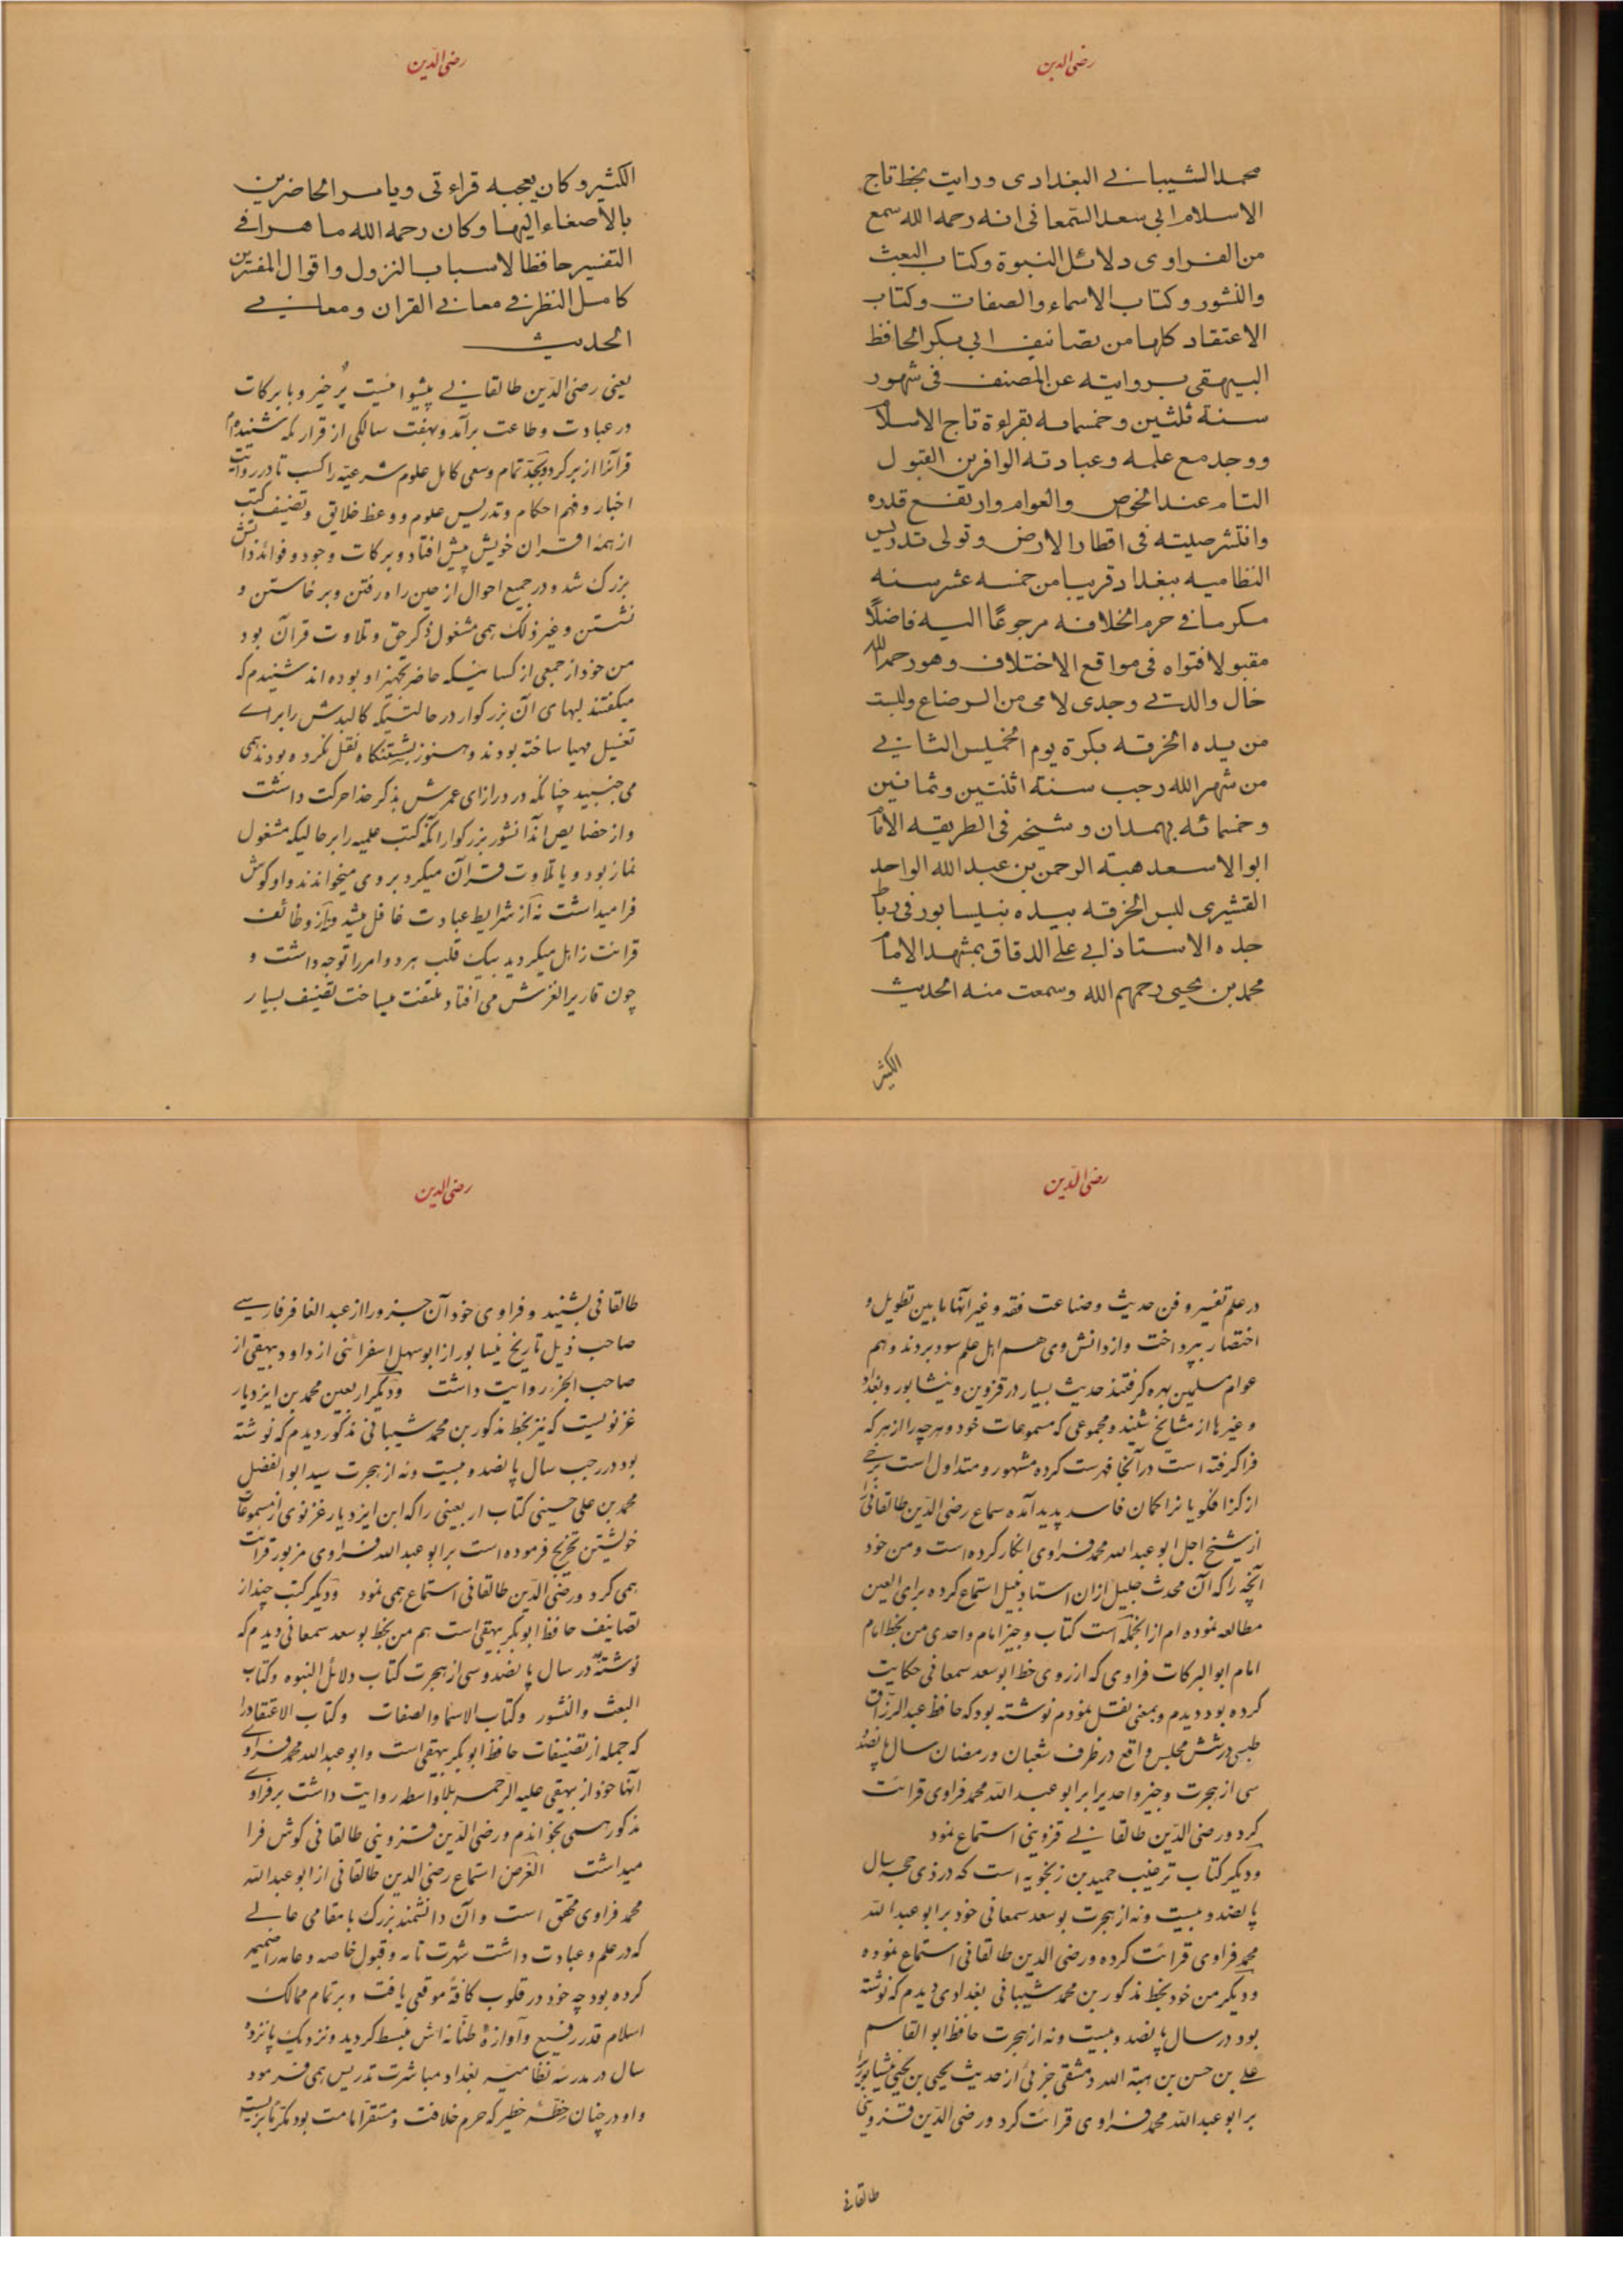 رضی الدین
محمد الشیبانے البغدادی ورایت بخط تاج
الاسلام ابی سعد السمعانی انه رحمه الله سمع
من الفراوی دلائل النبوة وکتاب البعث
والنشور وکتاب الاسماء والصفات وکتاب
الاعتقاد کلها من تصانیف ابی بکر الحافظ
البیهقی بروایته عن المصنف فی شهور
سنة ثلثین وخمسمامه بقراءة تاج الاسلام
ووجد مع علمه وعبادته الوافرین القبول
التام عند الخوص والعوام وارتفع قدره
وانتشر صیته فی اقطار الارض وتولی تدریس
النظامیه ببغداد قریبا من خمسه عشر سنه
مکرما فے حرم الخلافه مرجوعًا الیه فاضلًا
مقبولا فتواه فی مواقع الاختلاف وهو رحمه الله
خال والدتے وجدی لامی من الرضاع ولبست
من یده الخرقه بکرة یوم الخمیس الثانے
من شهر الله رجب سنة اثنتین وثمانین
وخمسمائه بهمدان وشیخه فی الطریقه الامام
ابو الاسعد هبة الرحمن بن عبد الله الواحد
القشیری لبس الخرقه بیده بنیسابور فی رباط
جده الاستاذ ابی علے الدقاق بمشهد الامام
محمد بن یحیی رحمهم الله وسمعت منه الحدیث
الکثیر
رضی الدین
الکثیر وکان یعجبه قراءتی ویامر الحاضرین
بالاصغاء الیها وکان رحمه الله ماهرا فے
التفسیر حافظا لاسباب النزول واقوال المفسرین
کامل النظر فے معانے القران ومعانے
الحدیث
یعنی رضی الدین طالقانے پیشوائیست پُر خیر و با برکات
در عبادت و طاعت برآمد و بهفت سالکی از قرار که شنیدم
قرآنرا از بر کرد و بجدّ تمام وسعی کامل علوم شرعیّه را کسب تا در روایت
اخبار و فهم احکام و تدریس علوم و وعظ خلایق و تصنیف کتب
از همهٔ اقران خویش پیش افتاد و برکات وجود و فوائد ذاتش
بزرک شد و در جمیع احوال از حین راه رفتن و برخاستن و
نشستن و غیر ذلک همی مشغول ذکر حق و تلاوت قرآن بود
من خود از جمعی از کسانیکه حاضر تجهیز او بوده اند شنیدم که
میکفتند لبهای آن بزرکوار در حالتیکه کالبدش را براے
تغسیل مهیا ساخته بودند و هنوز بشستنکاه نقل نکرده بودند همی
می جنبید چنانکه در درازای عمرش بذکر خدا حرکت داشت
و از خصایص آندانشور بزرکوار آنکه کتب علمیه را بر حالیکه مشغول
نماز بود و یا تلاوت قرآن میکرد بر وی میخواندند و او کوش
فرا میداشت نه از شرایط عبادت غافل میشد و نه از وظائف
قرائت زاهل میکردید بیک قلب بهر دو امر را توجه داشت و
چون قاریرا لغزش می افتاد ملتفت میساخت تصنیف بسیار
رضی الدین
در علم تفسیر و فن حدیث و صناعت فقه و غیر آنها ما بین تطویل و
اختصار بپرداخت و از دانش وی هم اهل علم سود بردند و هم
عوام مسلمین بهره کرفتند حدیث بسیار در قزوین و نیشابور و بغداد
و غیرها از مشایخ شنید و مجموعی که مسموعات خود و هرچه را از هر که
فرا کرفته است در آنجا فهرست کرده مشهور و متداول است برخے
از کزافکویانرا کمان فاسد پدید آمده سماع رضی الدین طالقانی را
از شیخ اجل ابو عبد الله محمد فراوی انکار کرده است و من خود
آنچه را که آن محدث جلیل از ان استاد نبیل استماع کرده برای العین
مطالعه نموده ام از انجمله است کتاب وجیز امام واحدی من بخط امام
امام ابو البرکات فراوی که از روی خط ابو سعد سمعانی حکایت
کرده بود دیدم و بمعنی نقل نمودم نوشته بود که حافظ عبد الرزاق
طبسی در شش مجلس واقع در ظرف شعبان و رمضان سال پانصد
سی از هجرت وجیز واحدیرا بر ابو عبد الله محمد فراوی قرائت
کرد و رضی الدین طالقانے قزوینی استماع نمود
و دیکر کتاب ترغیب حمید بن زنجویه است که در ذی حجه سال
پانصد و بیست و نه از هجرت بو سعد سمعانی خود بر ابو عبد الله
محمد فراوی قرائت کرده و رضی الدین طالقانی استماع نموده
و دیکر من خود بخط مذکور بن محمد شیبانی بغدادی دیدم که نوشته
بود در سال پانصد و بیست و نه از هجرت حافظ ابو القاسم
علے بن حسن بن هبة الله دمشقی جزئی از حدیث یحیی بن یحیی نیشابوریرا
بر ابو عبد الله محمد فراوی قرائت کرد و رضی الدین قزوینی
طالقانی
رضی الدین
طالقانی بشنید و فراوی خود آن جزو را از عبد الغافر فارسے
صاحب ذیل تاریخ نیسابور از ابو سهل اسفرائنی از داود بیهقی از
صاحب الجزء روایت داشت و دیکر اربعین محمد بن ایزدیار
غزنویست که نیز بخط مذکور بن محمد شیبانی مذکور دیدم که نوشته
بود در رجب سال پانصد و بیست و نه از هجرت سید ابو الفضل
محمد بن علی حسینی کتاب اربعینی را که ابن ایزدیار غزنوی از مسموعات
خویشتن تخریج فرموده است بر ابو عبد الله فراوی مزبور قرائت
همی کرد و رضی الدین طالقانی استماع همی نمود و دیکر کتب چند از
تصانیف حافظ ابو بکر بیهقی است هم من بخط بو سعد سمعانی دیدم که
نوشته در سال پانصد و سی از هجرت کتاب دلائل النبوه و کتاب
البعث والنشور و کتاب الاسما والصفات و کتاب الاعتقاد را
که جمله از تصنیفات حافظ ابو بکر بیهقی است و ابو عبد الله محمد فراوے
آنها خود از بیهقی علیه الرحمه بلا واسطه روایت داشت بر فراوے
مذکور همی بخواندم و رضی الدین قزوینی طالقانی کوش فرا
میداشت الغرض استماع رضی الدین طالقانی از ابو عبد الله
محمد فراوی محقق است و آن دانشمند بزرک با مقامی عالے
که در علم و عبادت داشت شهرت تامه و قبول خاصه و عامه را ضمیمه
کرده بود چه خود در قلوب کافهٔ موقعی یافت و بر تمام ممالک
اسلام قدر رفیع و آوازهٔ طنّانه اش منبسط کردید و نزدیک پانزده
سال در مدرسهٔ نظامیّه بغداد مباشرت تدریس همی فرمود
و او در چنان خطّهٔ خطیر که حرم خلافت و مستقر امامت بود مکرّمًا بزیست